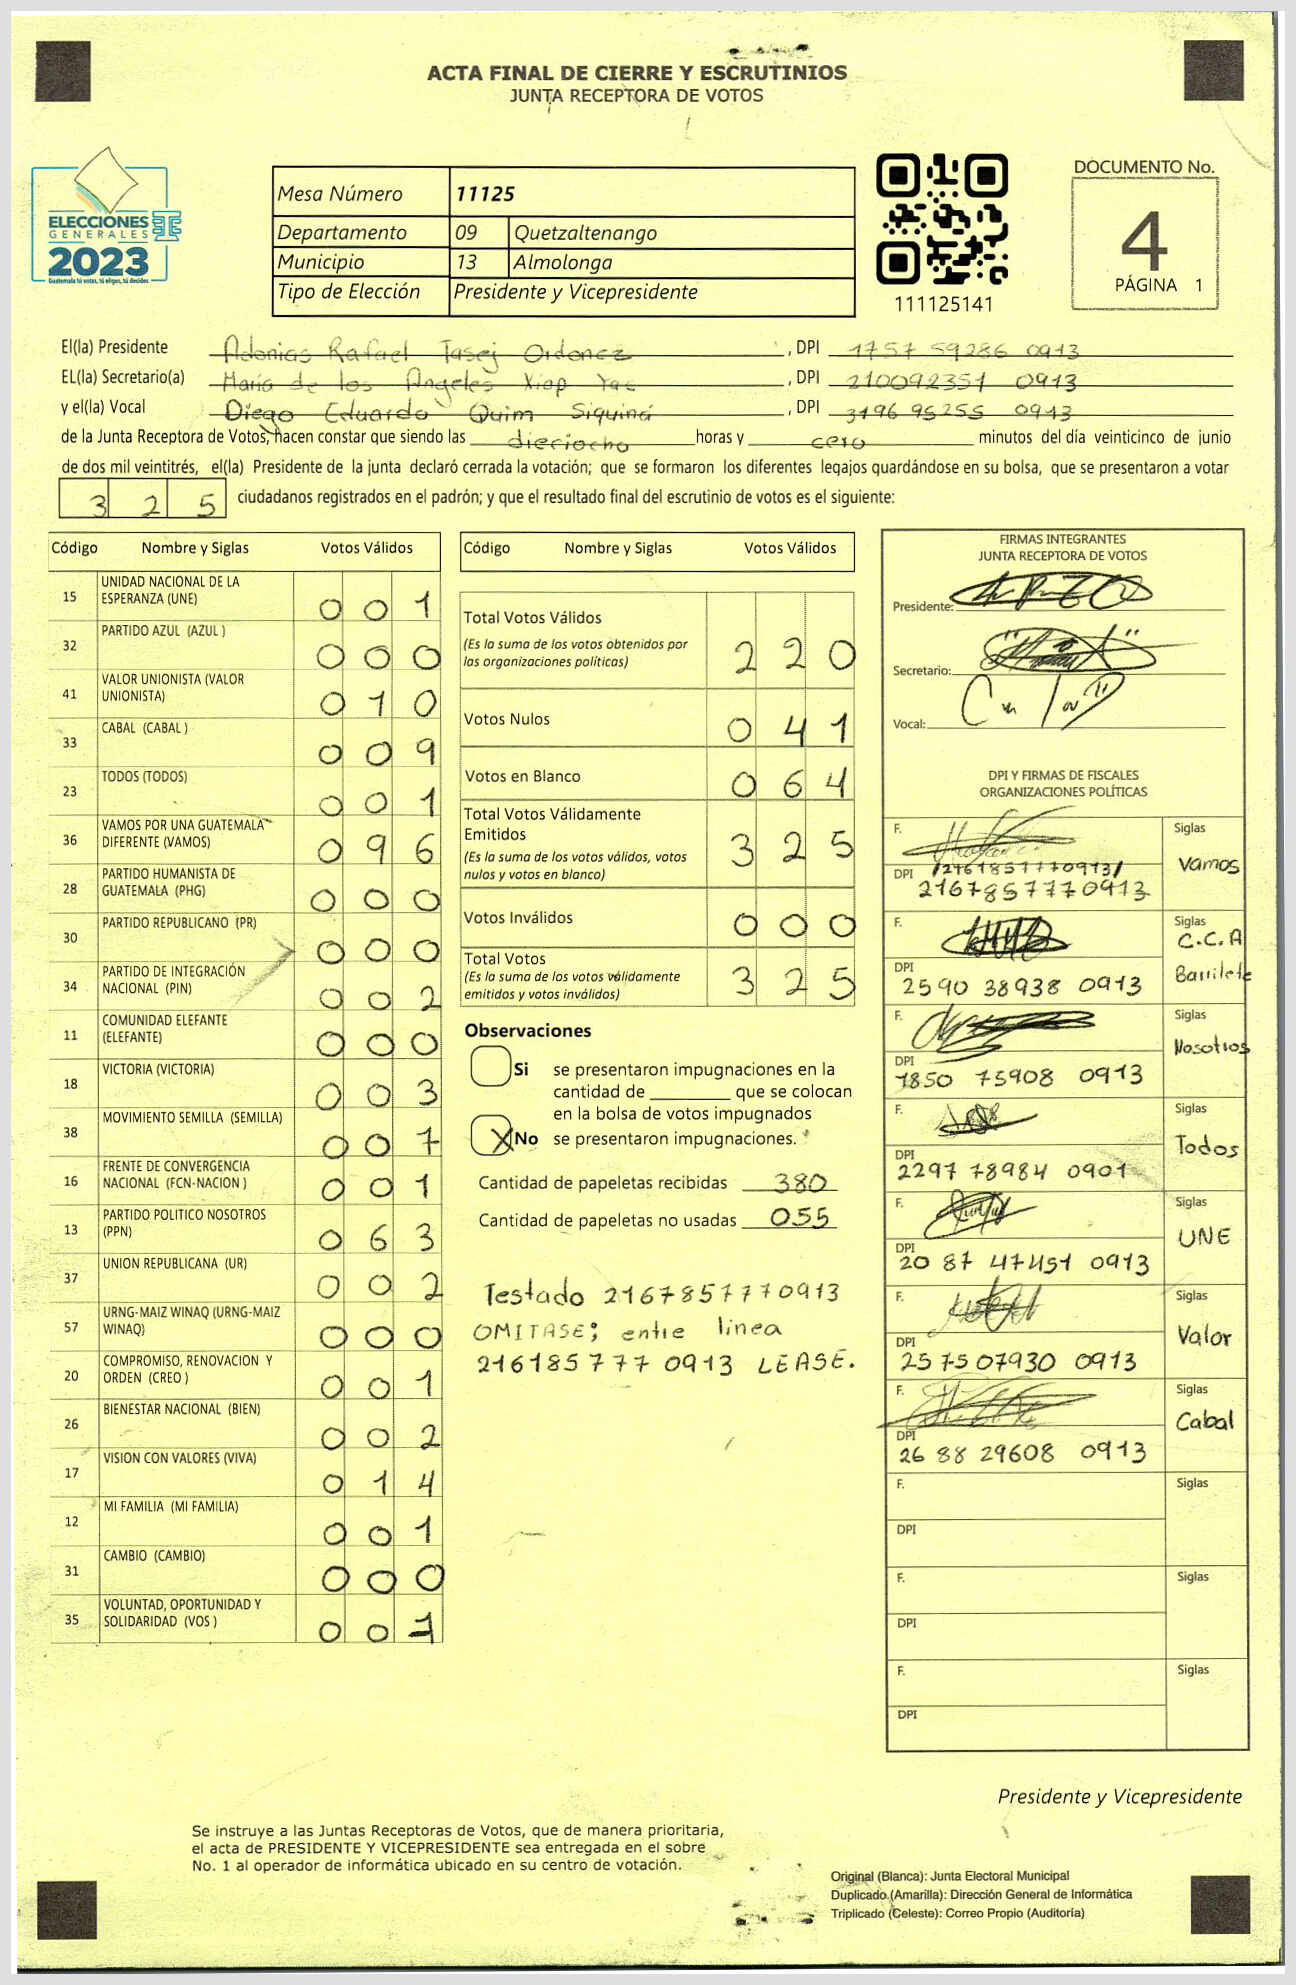 ACTA FINAL DE CIERRE Y ESCRUTINIOS
JUNTA RECEPTORA DE VOTOS
ELECCIONES
GENERALES
2023
Guatemala tú votas, tú eliges, tú decides
Mesa Número 11125
Departamento 09 Quetzaltenango
Municipio 13 Almolonga
Tipo de Elección Presidente y Vicepresidente
111125141
DOCUMENTO No.
4
PÁGINA 1
El(la) Presidente Adonias Rafael Tasej Ordonez, DPI 1757 59286 0913
EL(la) Secretario(a) María de los Angeles Xiap Yac, DPI 210092351 0913
y el(la) Vocal Diego Eduardo Quim Siquiná, DPI 3196 95255 0913
de la Junta Receptora de Votos, hacen constar que siendo las dieciocho horas y cero minutos del día veinticinco de junio
de dos mil veintitrés, el(la) Presidente de la junta declaró cerrada la votación; que se formaron los diferentes legajos guardándose en su bolsa, que se presentaron a votar
325 ciudadanos registrados en el padrón; y que el resultado final del escrutinio de votos es el siguiente:
Código Nombre y Siglas Votos Válidos
15 UNIDAD NACIONAL DE LA ESPERANZA (UNE) 001
32 PARTIDO AZUL (AZUL ) 000
41 VALOR UNIONISTA (VALOR UNIONISTA) 010
33 CABAL (CABAL ) 009
23 TODOS (TODOS) 001
36 VAMOS POR UNA GUATEMALA DIFERENTE (VAMOS) 096
28 PARTIDO HUMANISTA DE GUATEMALA (PHG) 000
30 PARTIDO REPUBLICANO (PR) 000
34 PARTIDO DE INTEGRACIÓN NACIONAL (PIN) 002
11 COMUNIDAD ELEFANTE (ELEFANTE) 000
18 VICTORIA (VICTORIA) 003
38 MOVIMIENTO SEMILLA (SEMILLA) 007
16 FRENTE DE CONVERGENCIA NACIONAL (FCN-NACION ) 001
13 PARTIDO POLITICO NOSOTROS (PPN) 063
37 UNION REPUBLICANA (UR) 002
57 URNG-MAIZ WINAQ (URNG-MAIZ WINAQ) 000
20 COMPROMISO, RENOVACION Y ORDEN (CREO ) 001
26 BIENESTAR NACIONAL (BIEN) 002
17 VISION CON VALORES (VIVA) 014
12 MI FAMILIA (MI FAMILIA) 001
31 CAMBIO (CAMBIO) 000
35 VOLUNTAD, OPORTUNIDAD Y SOLIDARIDAD (VOS ) 001
Código Nombre y Siglas Votos Válidos
Total Votos Válidos 220
(Es la suma de los votos obtenidos por
las organizaciones políticas)
Votos Nulos 041
Votos en Blanco 064
Total Votos Válidamente
Emitidos 325
(Es la suma de los votos válidos, votos
nulos y votos en blanco)
Votos Inválidos 000
Total Votos 325
(Es la suma de los votos válidamente
emitidos y votos inválidos)
Observaciones
Si se presentaron impugnaciones en la
cantidad de ________ que se colocan
en la bolsa de votos impugnados
X No se presentaron impugnaciones.
Cantidad de papeletas recibidas 380
Cantidad de papeletas no usadas 055
Testado 2167857770913
OMITASE; entre linea
216185777 0913 LEASE.
FIRMAS INTEGRANTES
JUNTA RECEPTORA DE VOTOS
Presidente:
Secretario:
Vocal:
DPI Y FIRMAS DE FISCALES
ORGANIZACIONES POLÍTICAS
F. Siglas
Vamos
DPI /2161857770913/
2167857770913
F. Siglas
C.C.A
Barrilete
DPI
2590 38938 0913
F. Siglas
Nosotros
DPI
1850 75908 0913
F. Siglas
Todos
DPI
2297 78984 0901
F. Siglas
UNE
DPI
20 87 47451 0913
F. Siglas
Valor
DPI
257507930 0913
F. Siglas
Cabal
DPI
26 88 29608 0913
F. Siglas
DPI
F. Siglas
DPI
F. Siglas
DPI
Presidente y Vicepresidente
Se instruye a las Juntas Receptoras de Votos, que de manera prioritaria,
el acta de PRESIDENTE Y VICEPRESIDENTE sea entregada en el sobre
No. 1 al operador de informática ubicado en su centro de votación.
Original (Blanca): Junta Electoral Municipal
Duplicado (Amarilla): Dirección General de Informática
Triplicado (Celeste): Correo Propio (Auditoría)